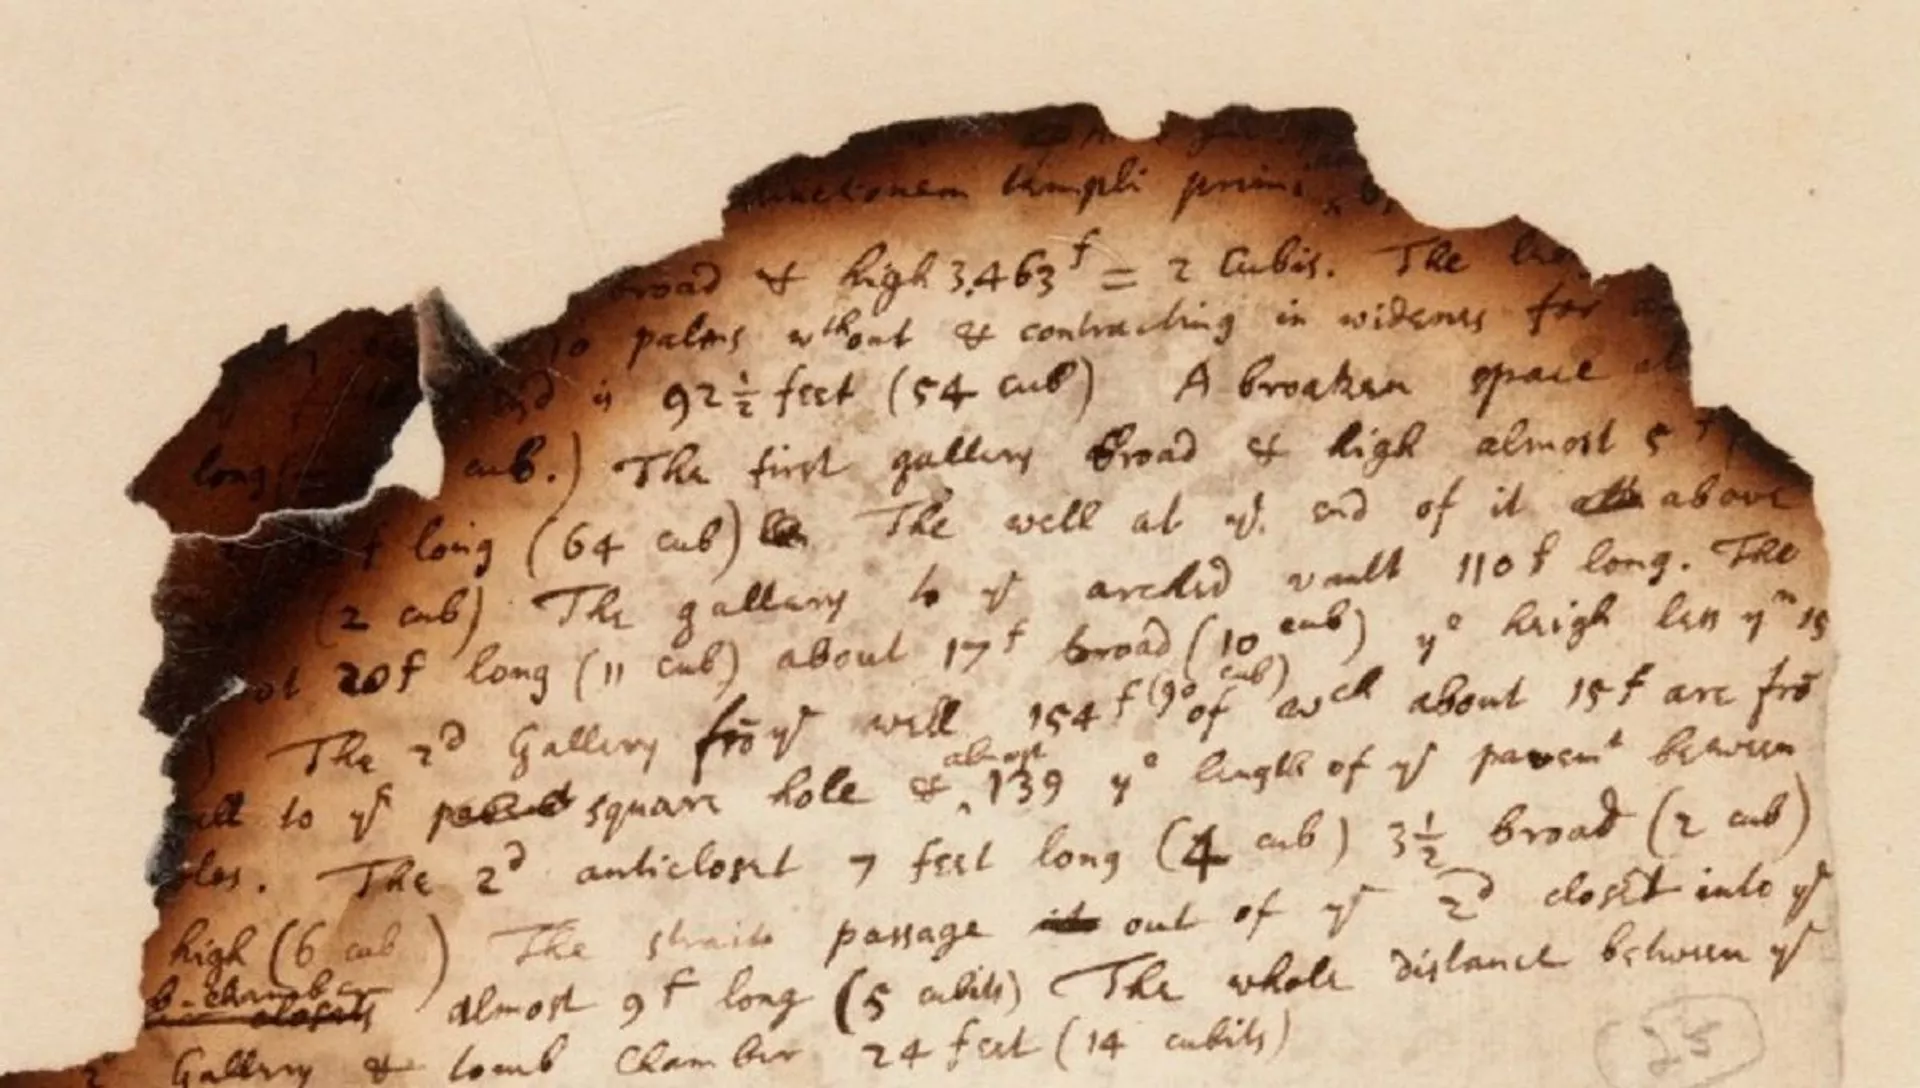 templi primi
broad & high 3.463f = 2 Cubis. The
10 palms wthout & contracting in widenes for
end is 92½ feet (54 cub) A broaken space
long cub.) The first gallery broad & high almost 5f
f long (64 cub) The well at ye. end of it above
(2 cub) The gallery to ye arched vault 110f long. The
ot 20f long (11 cub) about 17f broad (10 cub) ye heigh less yn 15
) The 2d Gallery frō ye well 154f (90 cub) of wch about 15f are frō
to ye square hole & almost 139 ye length of ye pavemt between
oles. The 2d anticloset 7 feet long (4 cub) 3½ broad (2 cub)
high (6 cub) The strait passage out of ye 2d closet into ye
b-chamber closets almost 9f long (5 cubits) The whole distance between ye
2 Gallery & tomb Chamber 24 feet (14 cubits)
25